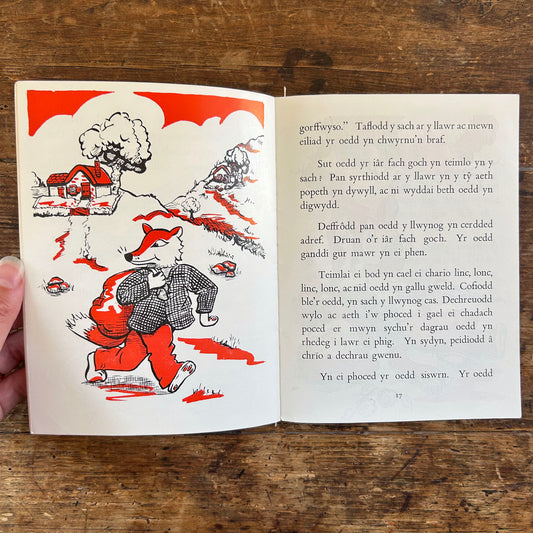 gorffwyso.” Taflodd y sach ar y llawr ac mewn
eiliad yr oedd yn chwyrnu’n braf.
Sut oedd yr iâr fach goch yn teimlo yn y
sach? Pan syrthiodd ar y llawr yn y tŷ aeth
popeth yn dywyll, ac ni wyddai beth oedd yn
digwydd.
Deffrôdd pan oedd y llwynog yn cerdded
adref. Druan o’r iâr fach goch. Yr oedd
ganddi gur mawr yn ei phen.
Teimlai ei bod yn cael ei chario linc, lonc,
linc, lonc, ac nid oedd yn gallu gweld. Cofiodd
ble’r oedd, yn sach y llwynog cas. Dechreuodd
wylo ac aeth i’w phoced i gael ei chadach
poced er mwyn sychu’r dagrau oedd yn
rhedeg i lawr ei phig. Yn sydyn, peidiodd â
chrio a dechrau gwenu.
Yn ei phoced yr oedd siswrn. Yr oedd
17